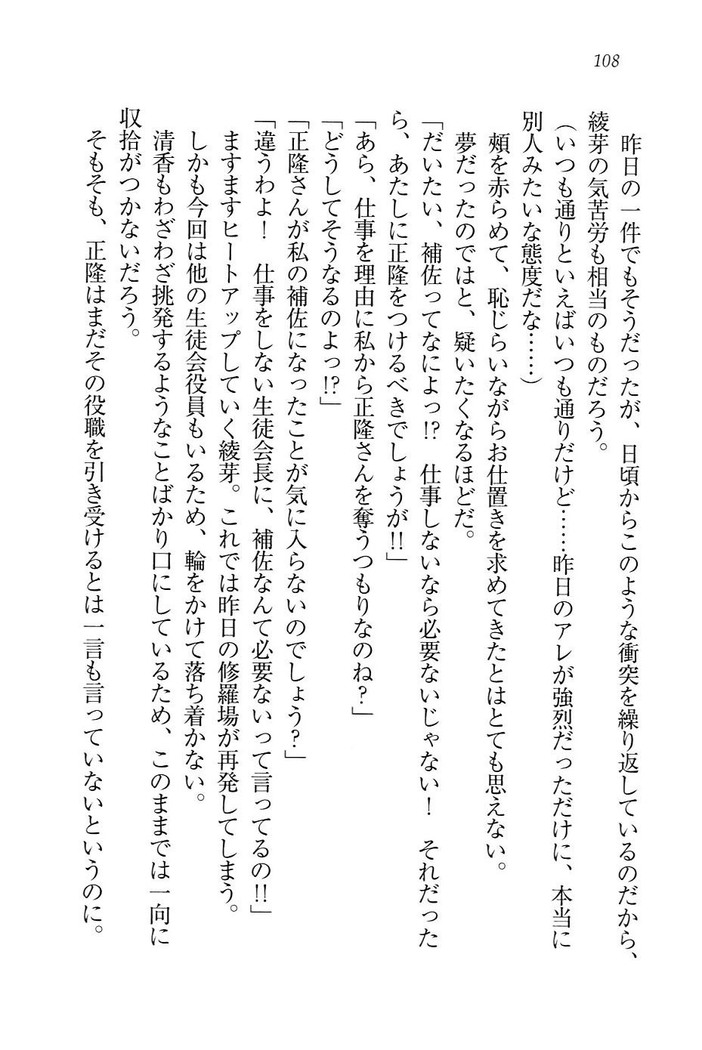 108
昨日の一件でもそうだったが、日頃からこのような衝突を繰り返しているのだから、
綾芽の気苦労も相当のものだろう。
（いつも通りといえばいつも通りだけど……昨日のアレが強烈だっただけに、本当に
別人みたいな態度だな……）
頬を赤らめて、恥じらいながらお仕置きを求めてきたとはとても思えない。
夢だったのではと、疑いたくなるほどだ。
「だいたい、補佐ってなによっ!?　仕事しないなら必要ないじゃない！　それだった
ら、あたしに正隆をつけるべきでしょうが!!」
「あら、仕事を理由に私から正隆さんを奪うつもりなのね？」
「どうしてそうなるのよっ!?」
「正隆さんが私の補佐になったことが気に入らないのでしょう？」
「違うわよ！　仕事をしない生徒会長に、補佐なんて必要ないって言ってるの!!」
ますますヒートアップしていく綾芽。これでは昨日の修羅場が再発してしまう。
しかも今回は他の生徒会役員もいるため、輪をかけて落ち着かない。
清香もわざわざ挑発するようなことばかり口にしているため、このままでは一向に
収拾がつかないだろう。
そもそも、正隆はまだその役職を引き受けるとは一言も言っていないというのに。